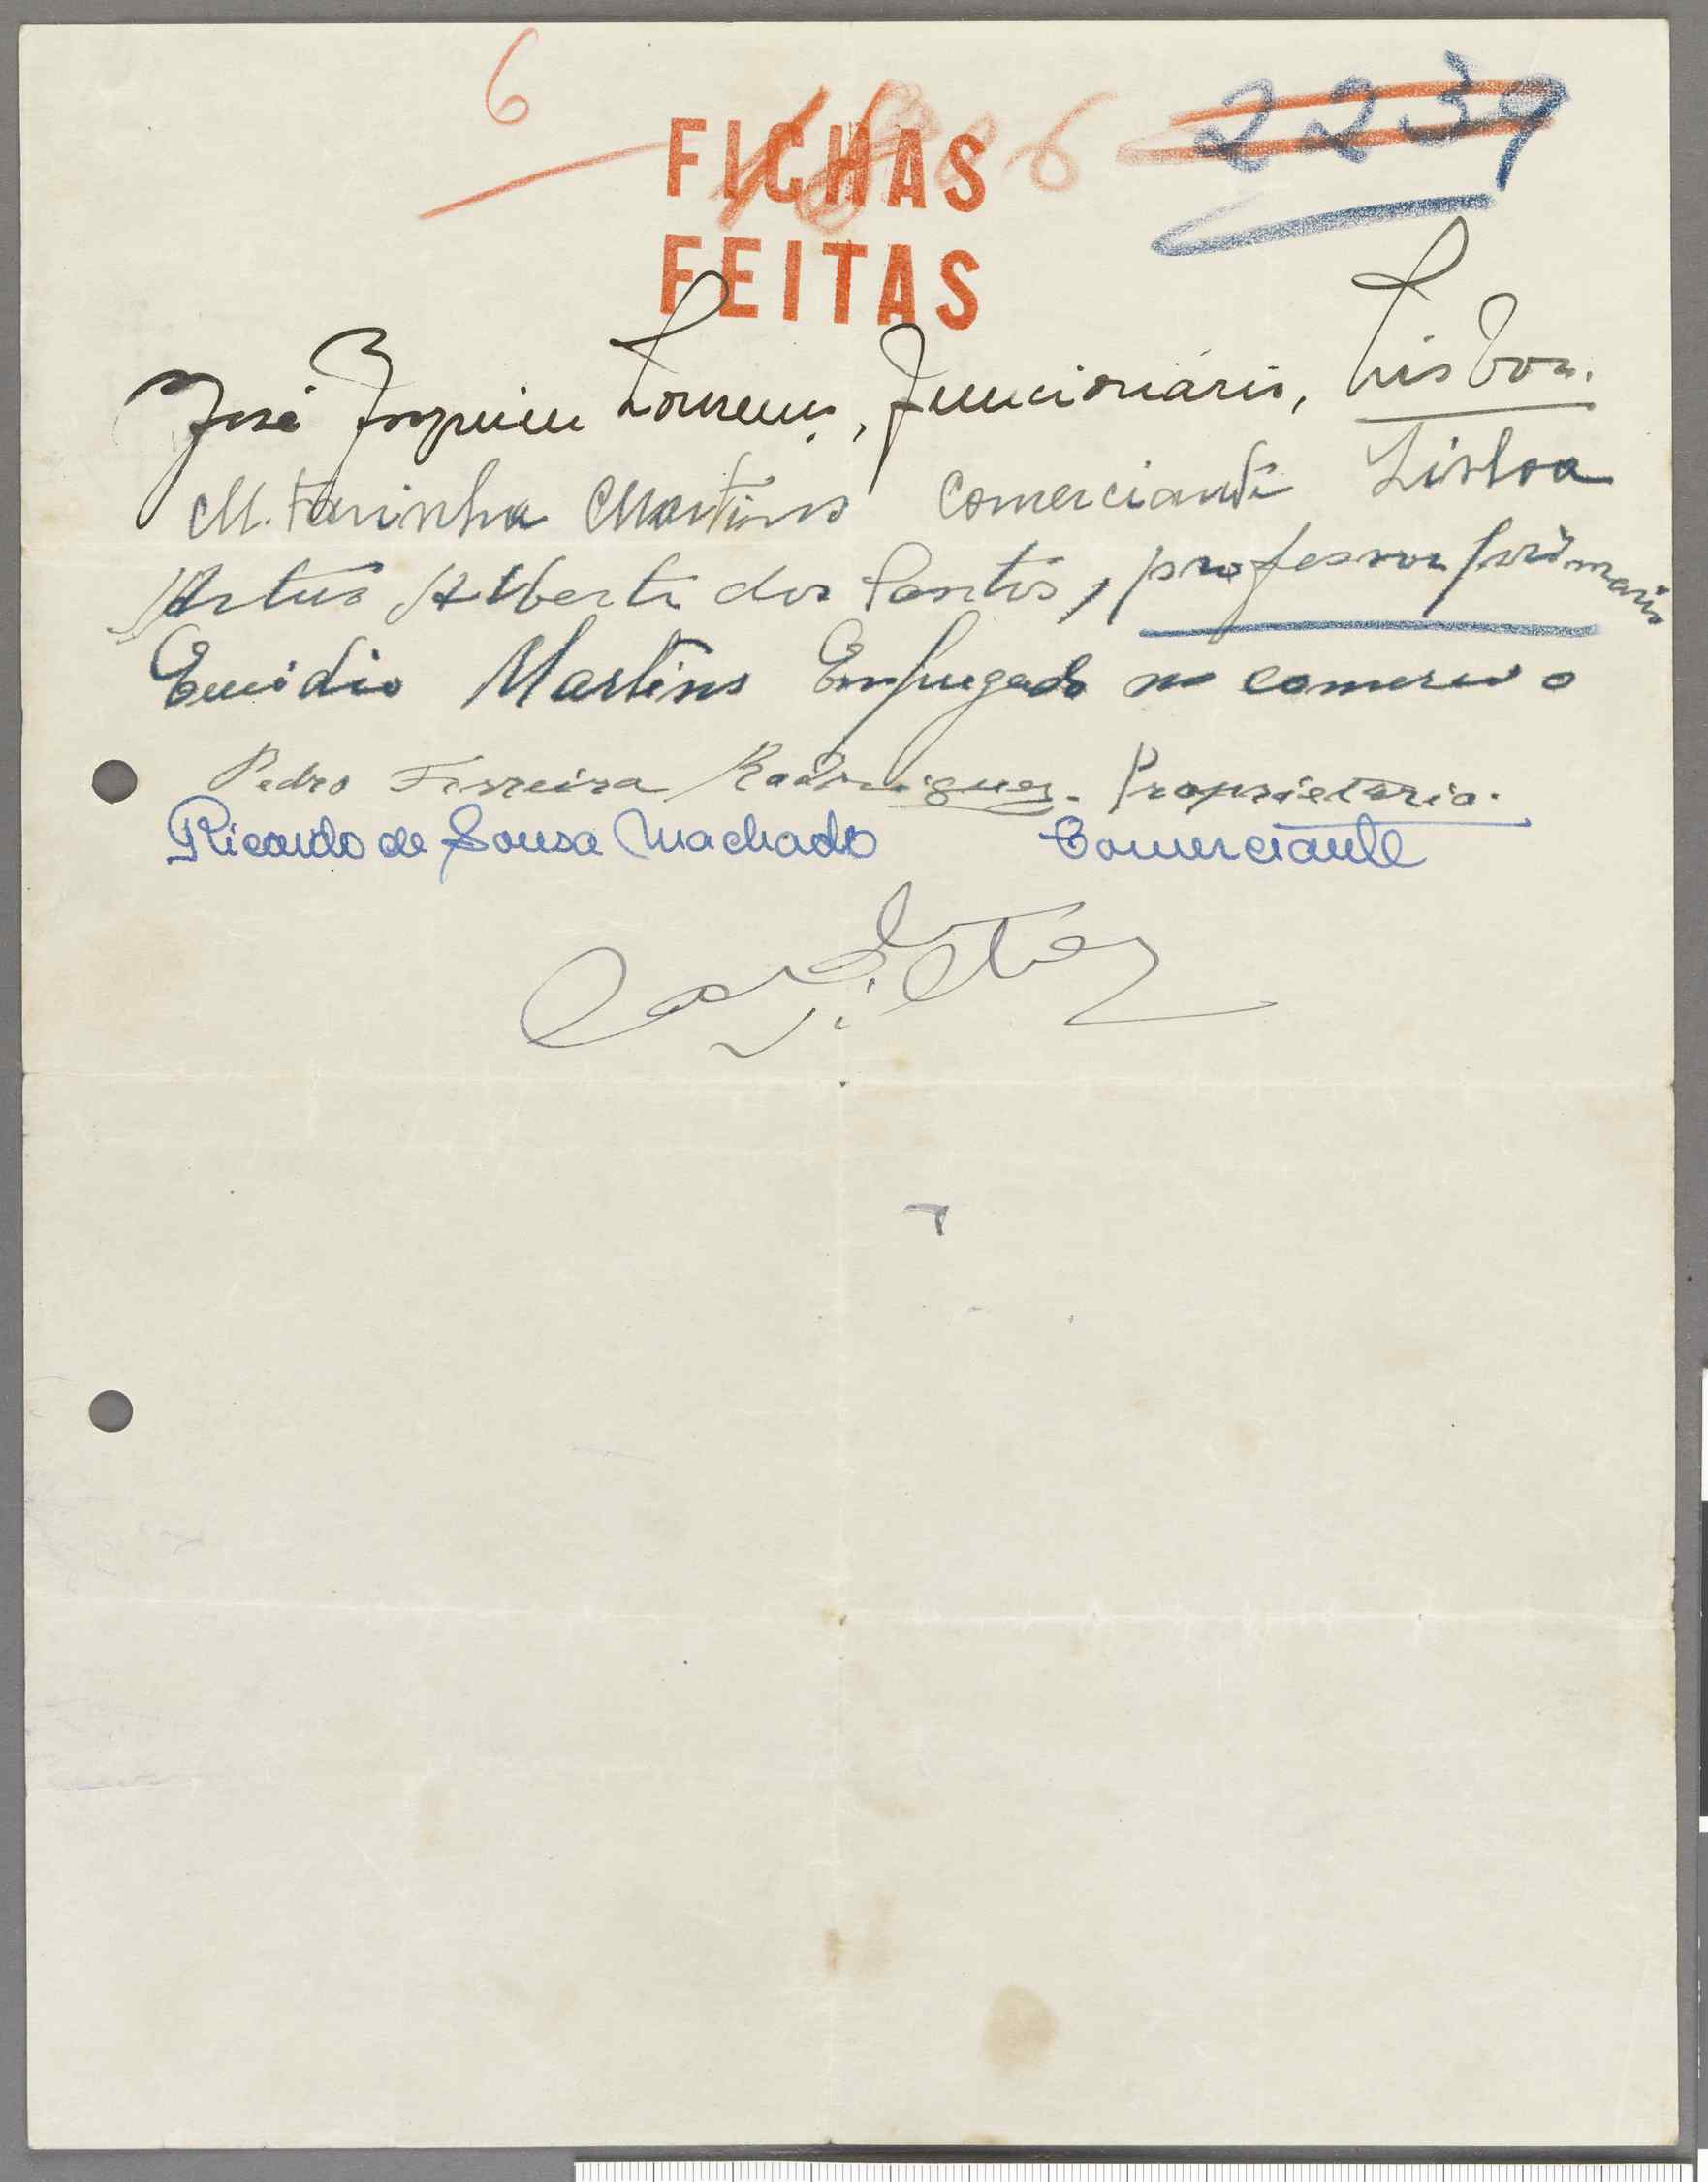 6
2239
FICHAS
FEITAS
José Joaquim Lourenço, funcionário, Lisboa.
M. Farinha Martins comerciante Lisboa
Artur Alberto dos Santos, professor primario
Emidio Martins Empregado no comercio
Pedro Ferreira Rodrigues. Proprietario.
Ricardo de Sousa Machado Comerciante